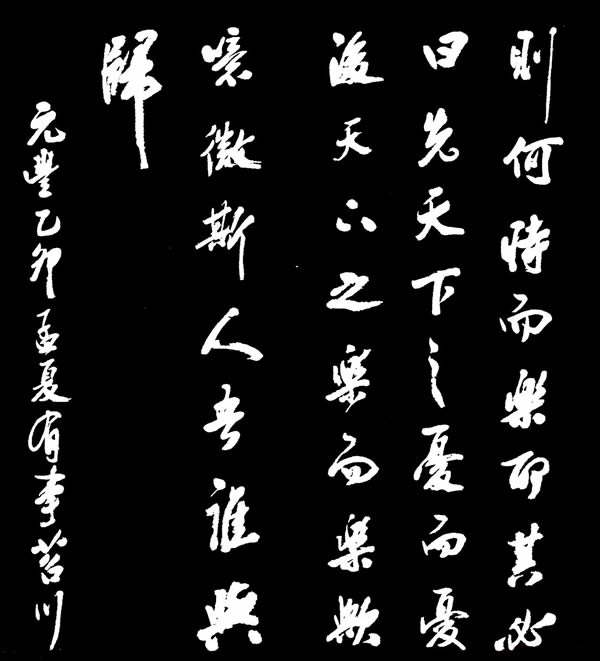 則何時而樂耶其必
曰先天下之憂而憂
後天下之樂而樂歟
噫微斯人吾誰與
歸
元豐乙卯孟夏有事苕川